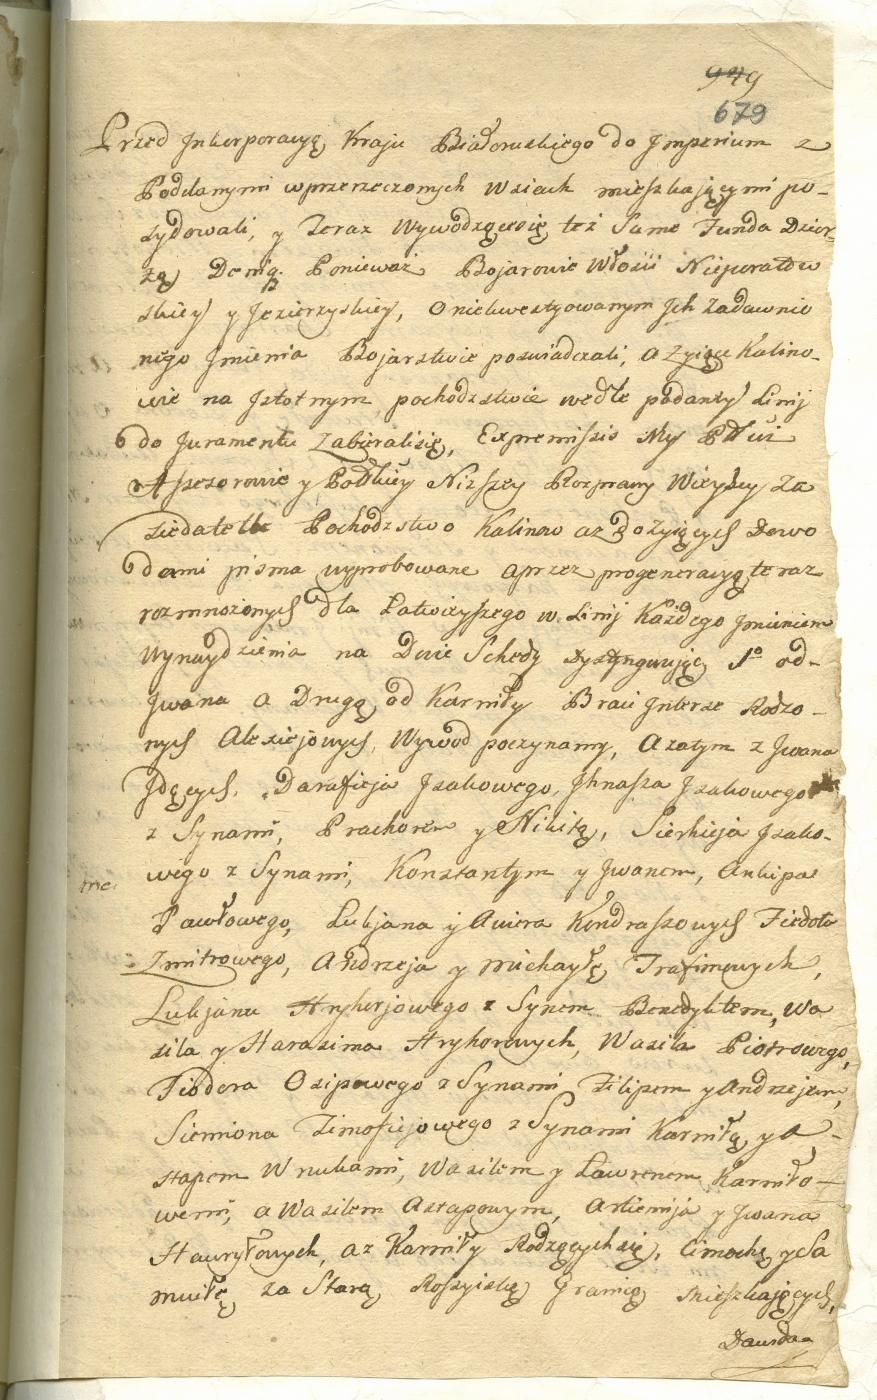 949
679
Przed Jnkerporacyą Kraju Białoruskiego do Jmperium z
Poddanymi wprzerzeczonych Wsiach mieszkającymi po-
sydowali, y Teraz Wywodzącesię też Same Funda Dzier-
żą Ponieważ Bojarowie Włości
skiey y Jezierzyskiey, O niekwestyowanym Jch Zadawnio
nego Jmienia Bojarstwie poswiadczali, a Zyiące Kalino-
wie na Jstotnym pochodzstwie wedle podaney Linij
do Juramentu Zabieralisię, Expremissis My
Assesorowie y Niższey Rozprawy Wieyscy Za
siedatelle Pochodzstwo Kalinow aż do Zyiących Dowo
dami pisma wyprobowane a przez progeneracyą teraz
rozmnożonych dla Łatwieyszego w Linij Każdego Jmieniem
Wynaydzienia na Dwie Schedy Dystyngwując 1º od-
Jwana a Drugą od Karniły Braci Jnterse Rodzo-
nych Alexiejowych, Wywod poczynamy, A zatym z Jwana
Jdących, Daraficja Jsakowego, Jhnasza Jsakowego
z Synami, Prachorem y Nikitą, Sierhieja Jsako-
wego z Synami, Konstantym y Jwanem, Antipa
Pawłowego, Lukjana y Awiera Kondraszowych Fiedota
Zmitrowego, Andrzeja y Michayłę Trafimowych,
Lukjana Hryhorjowego z Synem Benedyktem, Wa
sila y Harasima Hryhorowych, Wasila Piotrowego,
Fiodora Osipowego z Synami Filipem y Andrzejem,
Siemiona Timofiejowego z Synami Karniłą y A-
stapem Wnukami, Wasilem y Ławrenem Karniło-
wemi, a Wasilem Astapowym, Artiemija y Jwana
Hawryłowych, az Karniły Rodzącychsię, Cimochę y Sa
muiłę za Starą Rossyiską Granicą Mieszkających,